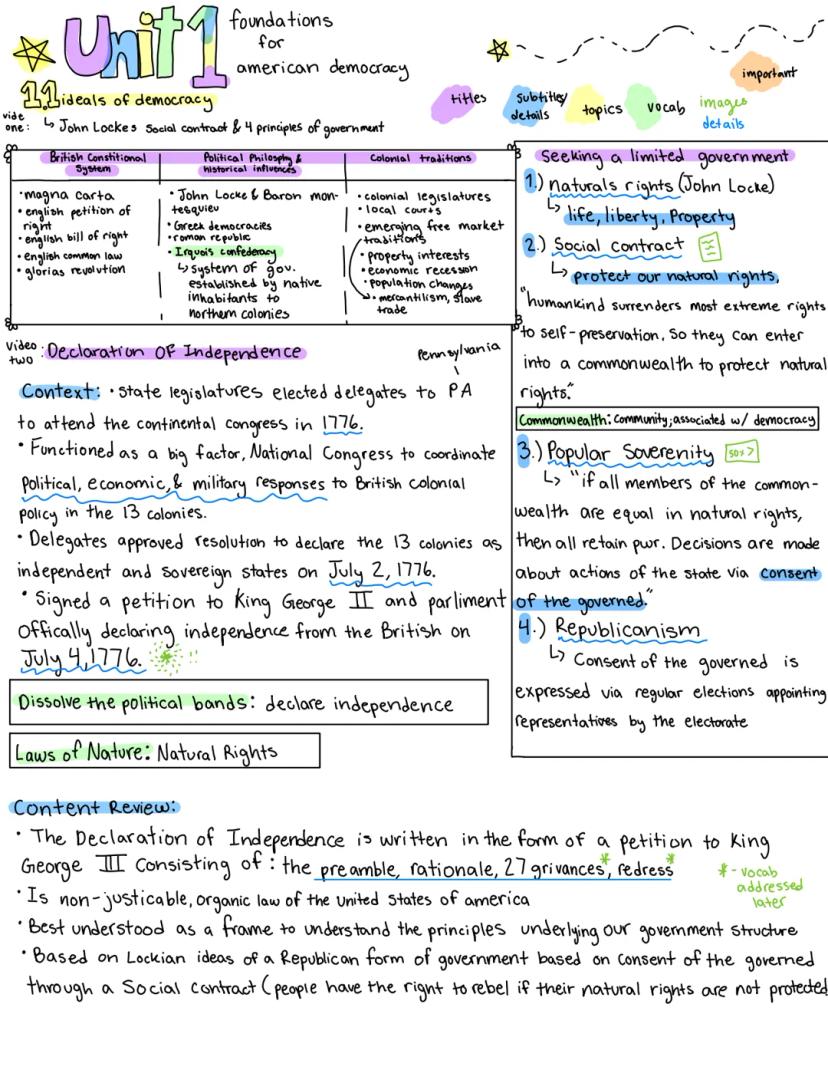 Unit 1 foundations
for
american democracy
1.1 ideals of democracy
vide
one: ↳ John Lockes Social contract & 4 principles of government
titles
Subtitles/
details
topics
vocab
images
details
important
British Constitional
System
Political Philosphy &
historical influences
Colonial traditions
• magna carta
• english petition of
right
• english bill of right
• english common law
• glorias revolution
• John Locke & Baron mon-
tesquieu
• Greek democracies
• roman republic
• Irquois confederacy
↳ system of gov.
established by native
inhabitants to
northern colonies
• colonial legislatures
• local courts
• emerging free market
traditions
• property interests
• economic recession
• population changes
• mercantilism, slave
trade
Seeking a limited government
1.) naturals rights (John Locke)
↳ life, liberty, Property
2.) Social contract
↳ protect our natural rights,
"humankind surrenders most extreme rights
to self-preservation, So they can enter
into a commonwealth to protect natural
rights."
Commonwealth: Community; associated w/ democracy
3.) Popular Soverenity
↳ "if all members of the common-
wealth are equal in natural rights,
then all retain pwr. Decisions are made
about actions of the state via consent
of the governed."
4.) Republicanism
↳ Consent of the governed is
expressed via regular elections appointing
representatives by the electorate
video
two : Declaration Of Independence
Pennsylvania
Context: • State legislatures elected delegates to PA
to attend the continental congress in 1776.
• Functioned as a big factor, National Congress to coordinate
Political, economic, & military responses to British colonial
policy in the 13 colonies.
• Delegates approved resolution to declare the 13 colonies as
independent and sovereign states on July 2, 1776.
• Signed a petition to King George II and parliment
Offically declaring independence from the British on
July 4, 1776.
Dissolve the political bands: declare independence
Laws of Nature: Natural Rights
Content Review:
• The Declaration of Independence is written in the form of a petition to King
George III Consisting of : the preamble, rationale, 27 grivances*, redress*
* - vocab
addressed
later
• Is non-justicable, organic law of the United States of america
• Best understood as a frame to understand the principles underlying our government structure
• Based on Lockian ideas of a Republican form of government based on consent of the governed
through a Social contract (people have the right to rebel if their natural rights are not protected